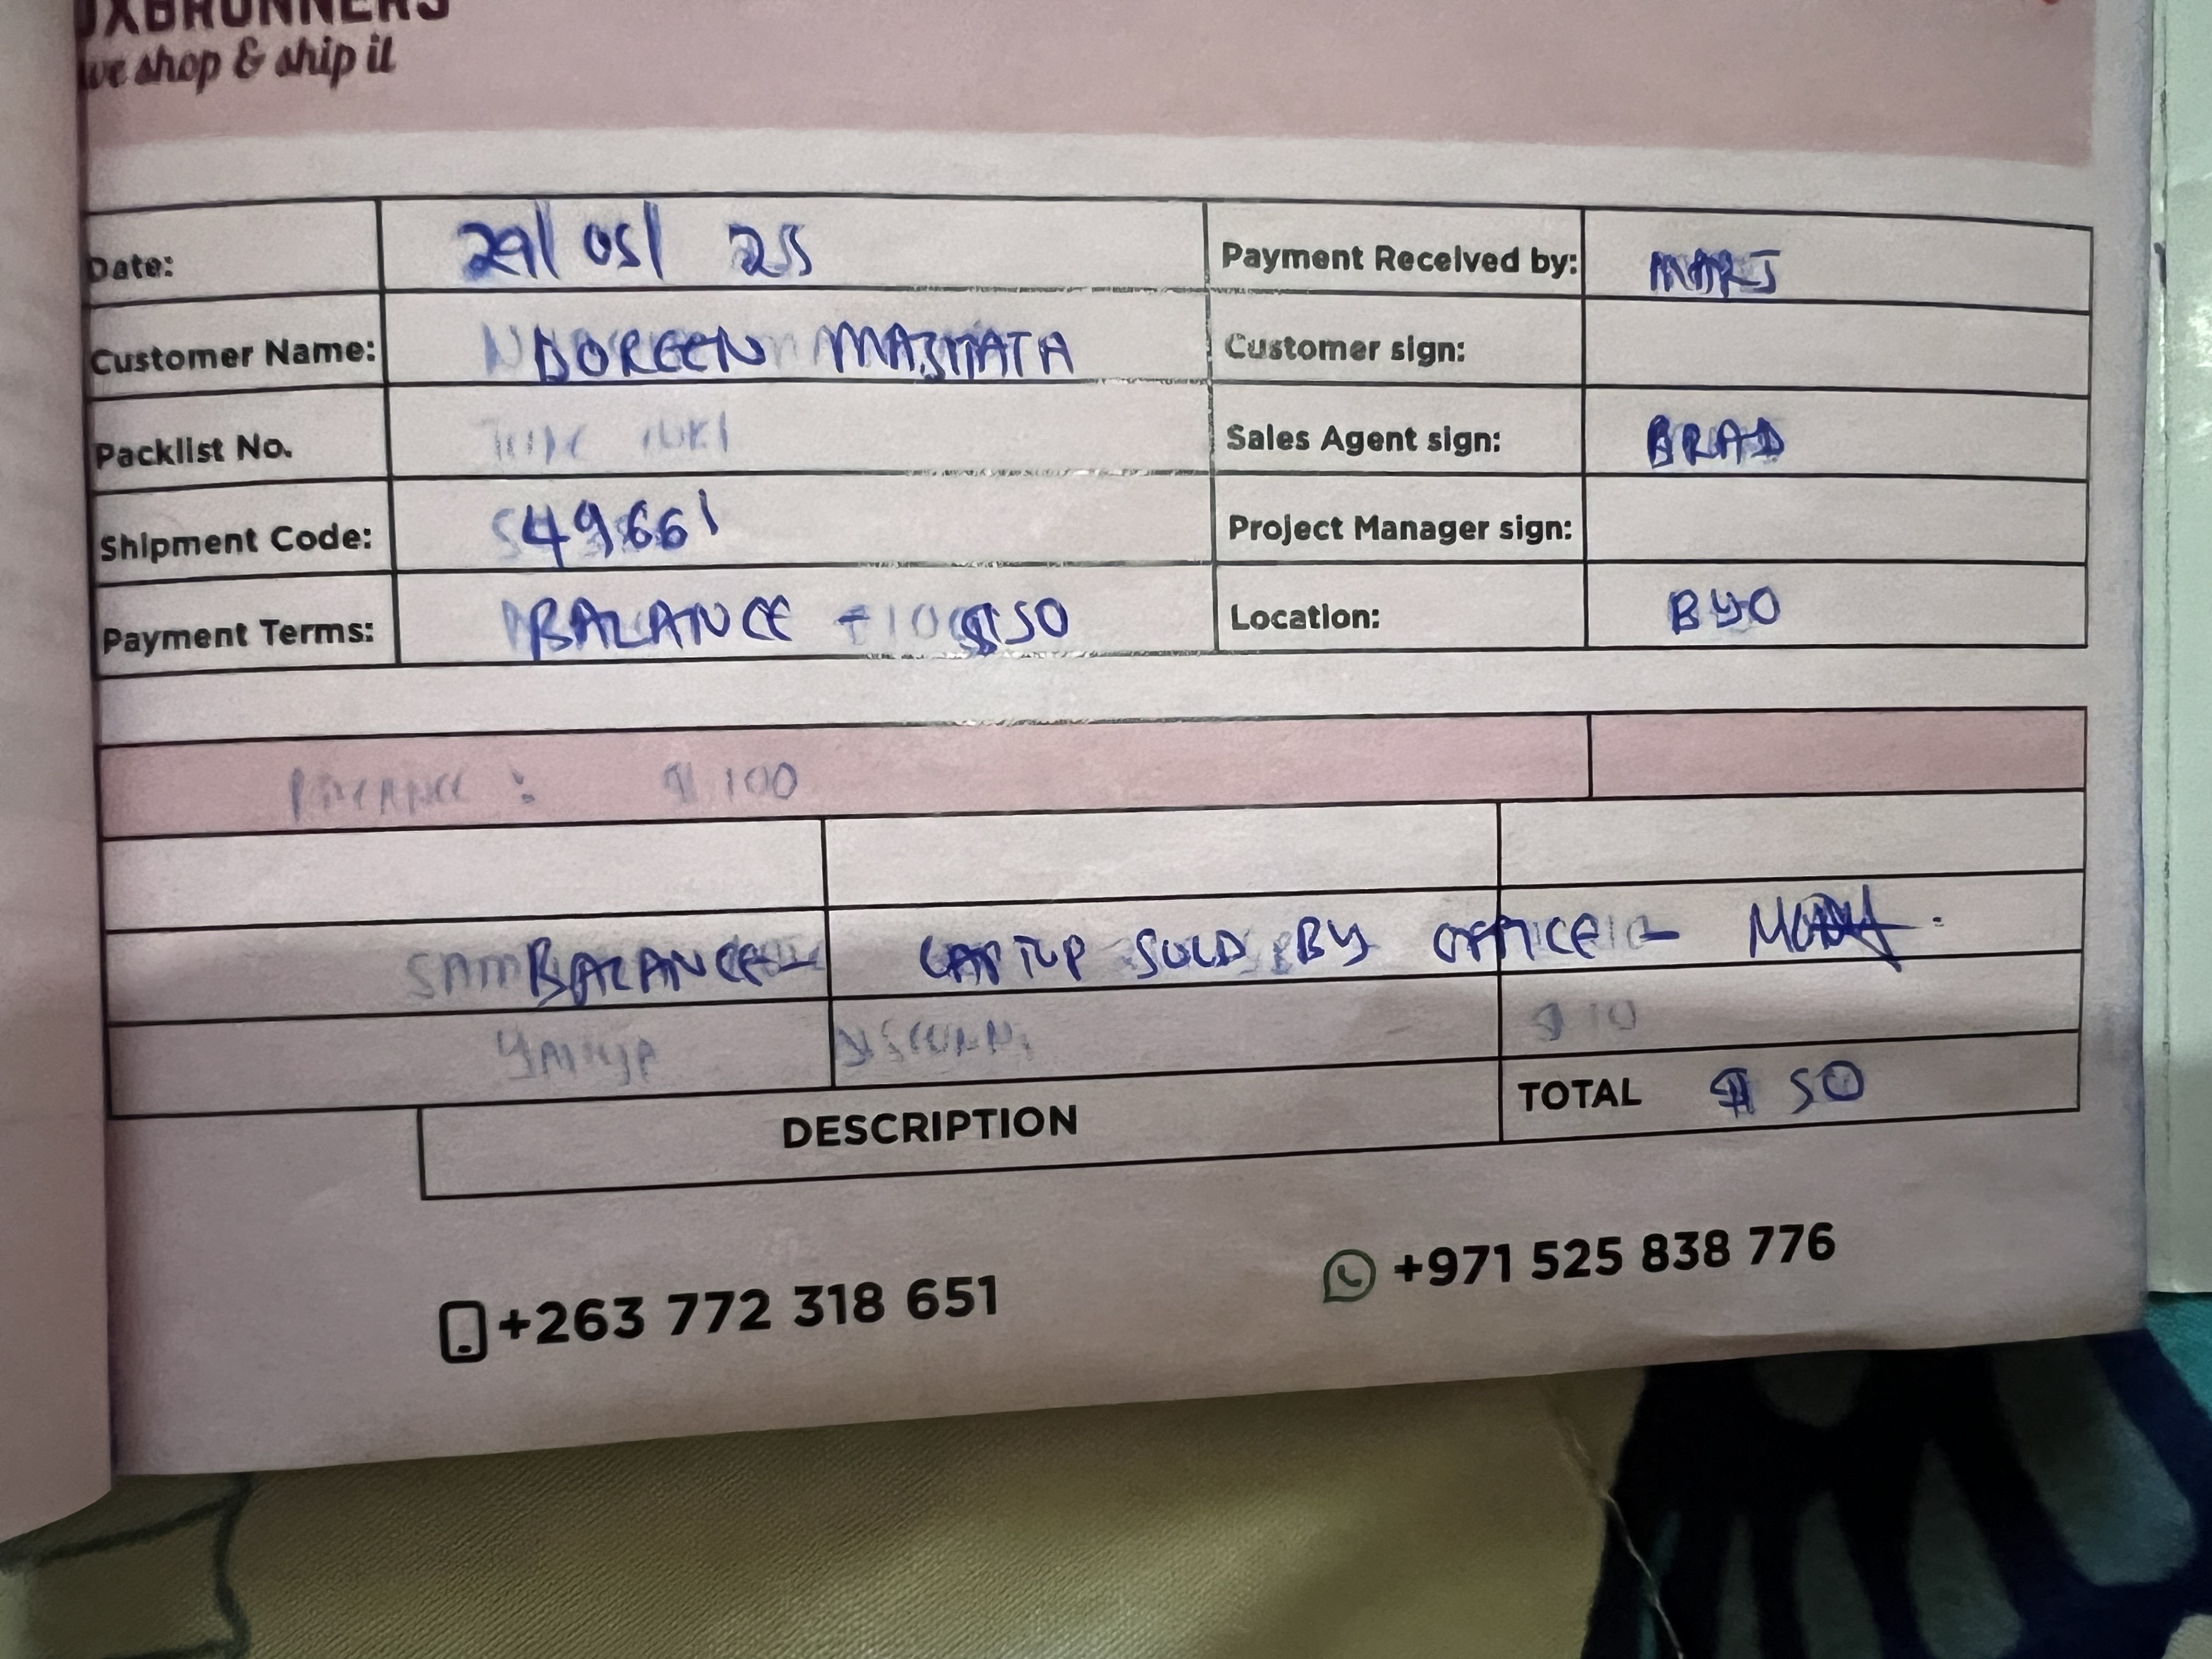 we shop & ship it
Date: 29/05/25 Payment Received by:
Customer Name: DOREEN Customer sign:
Packlist No. Sales Agent sign: BRAD
Shipment Code: 49661 Project Manager sign:
Payment Terms: BALANCE $50 Location: BYO
$ 100
BALANCE - LAPTOP SOLD BY OFFICE -
$ 10
DESCRIPTION TOTAL $ 50
+263 772 318 651 +971 525 838 776